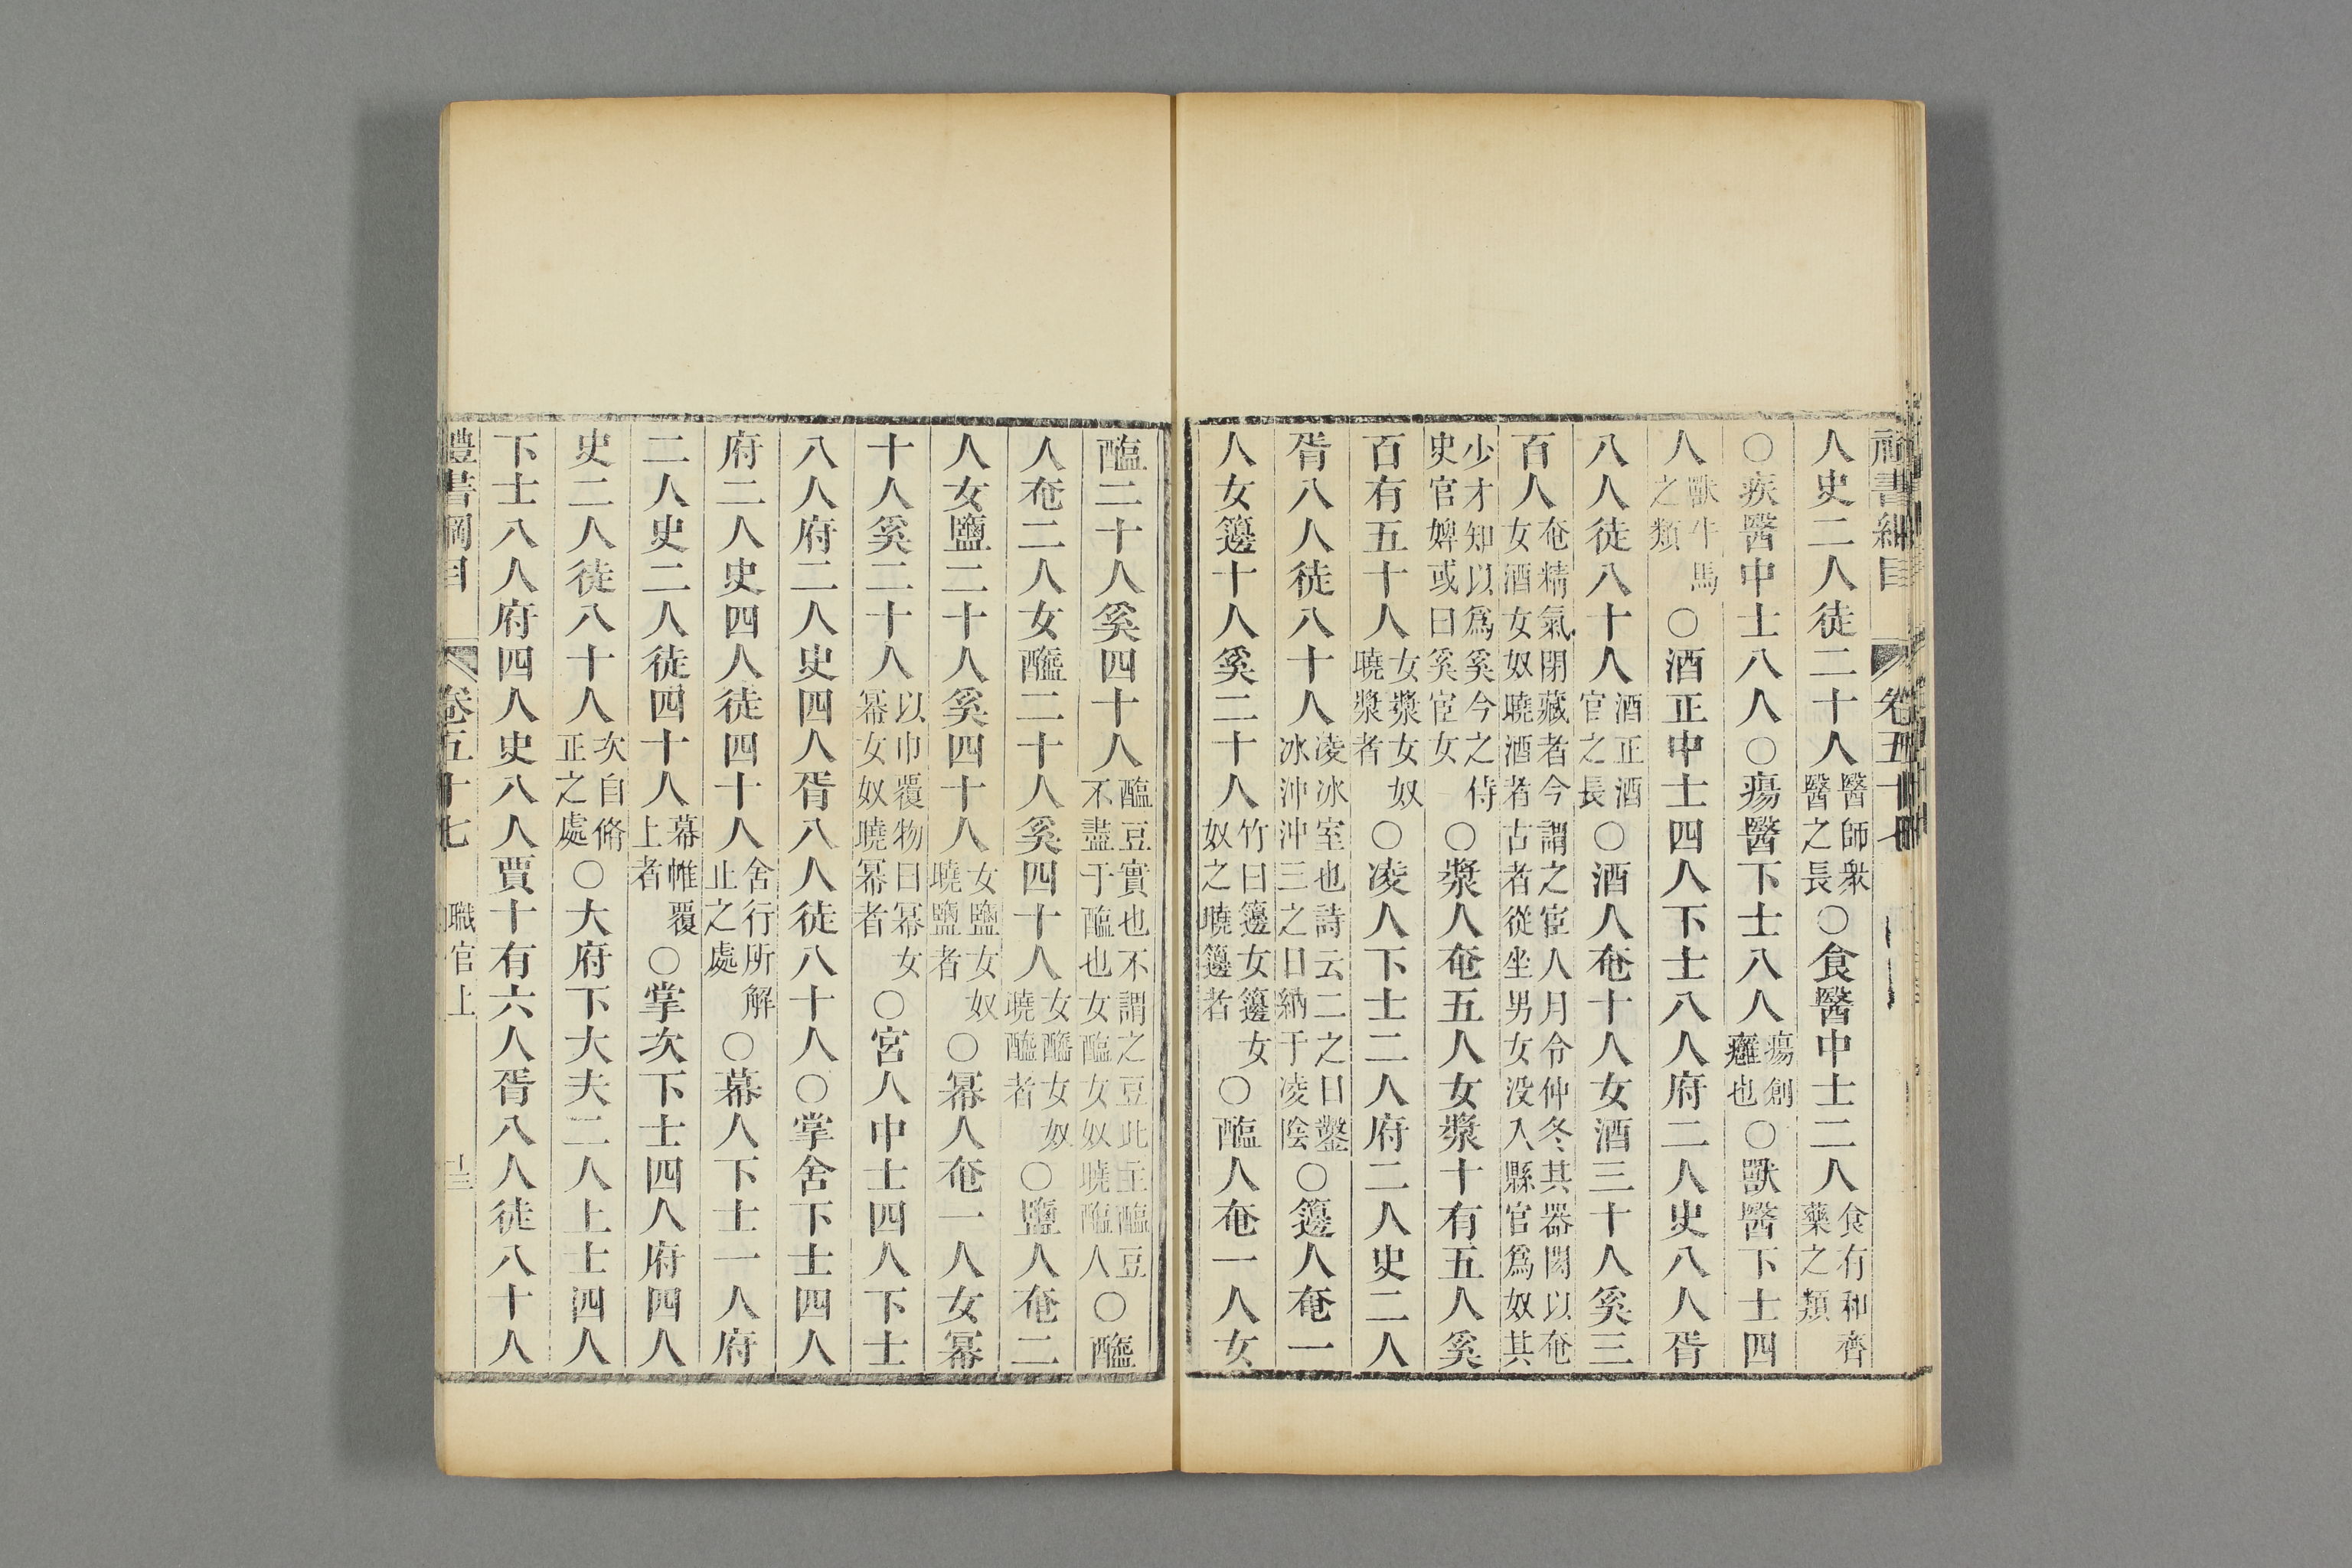 禮書綱目　卷五十七
人史二人徒二十人醫師衆醫之長○食醫中士二人食有和齊藥之類
○疾醫中士八人○瘍醫下士八人瘍創癰也○獸醫下士四
人獸牛馬之類○酒正中士四人下士八人府二人史八人胥
八人徒八十人酒正酒官之長○酒人奄十人女酒三十人奚三
百人奄精氣閉藏者今謂之宦人月令仲冬其器閎以奄女酒女奴曉酒者古者從坐男女没入縣官爲奴其
少才知以爲奚今之侍史官婢或曰奚宦女○漿人奄五人女漿十有五人奚
百有五十人女漿女奴曉漿者○凌人下士二人府二人史二人
胥八人徒八十人凌冰室也詩云二之日鑿冰沖沖三之日納于凌陰○籩人奄一
人女籩十人奚二十人竹曰籩女籩女奴之曉籩者○醢人奄一人女
醢二十人奚四十人醢豆實也不謂之豆此主醢豆不盡于醢也女醢女奴曉醢人○醯
人奄二人女醯二十人奚四十人女醯女奴曉醯者○鹽人奄二
人女鹽二十人奚四十人女鹽女奴曉鹽者○冪人奄一人女冪
十人奚二十人以巾覆物曰冪女冪女奴曉冪者○宮人中士四人下士
八人府二人史四人胥八人徒八十人○掌舍下士四人
府二人史四人徒四十人舍行所解止之處○幕人下士一人府
二人史二人徒四十人幕帷覆上者○掌次下士四人府四人
史二人徒八十人次自脩正之處○大府下大夫二人上士四人
下士八人府四人史八人賈十有六人胥八人徒八十人
禮書綱目　卷五十七　職官上　十三